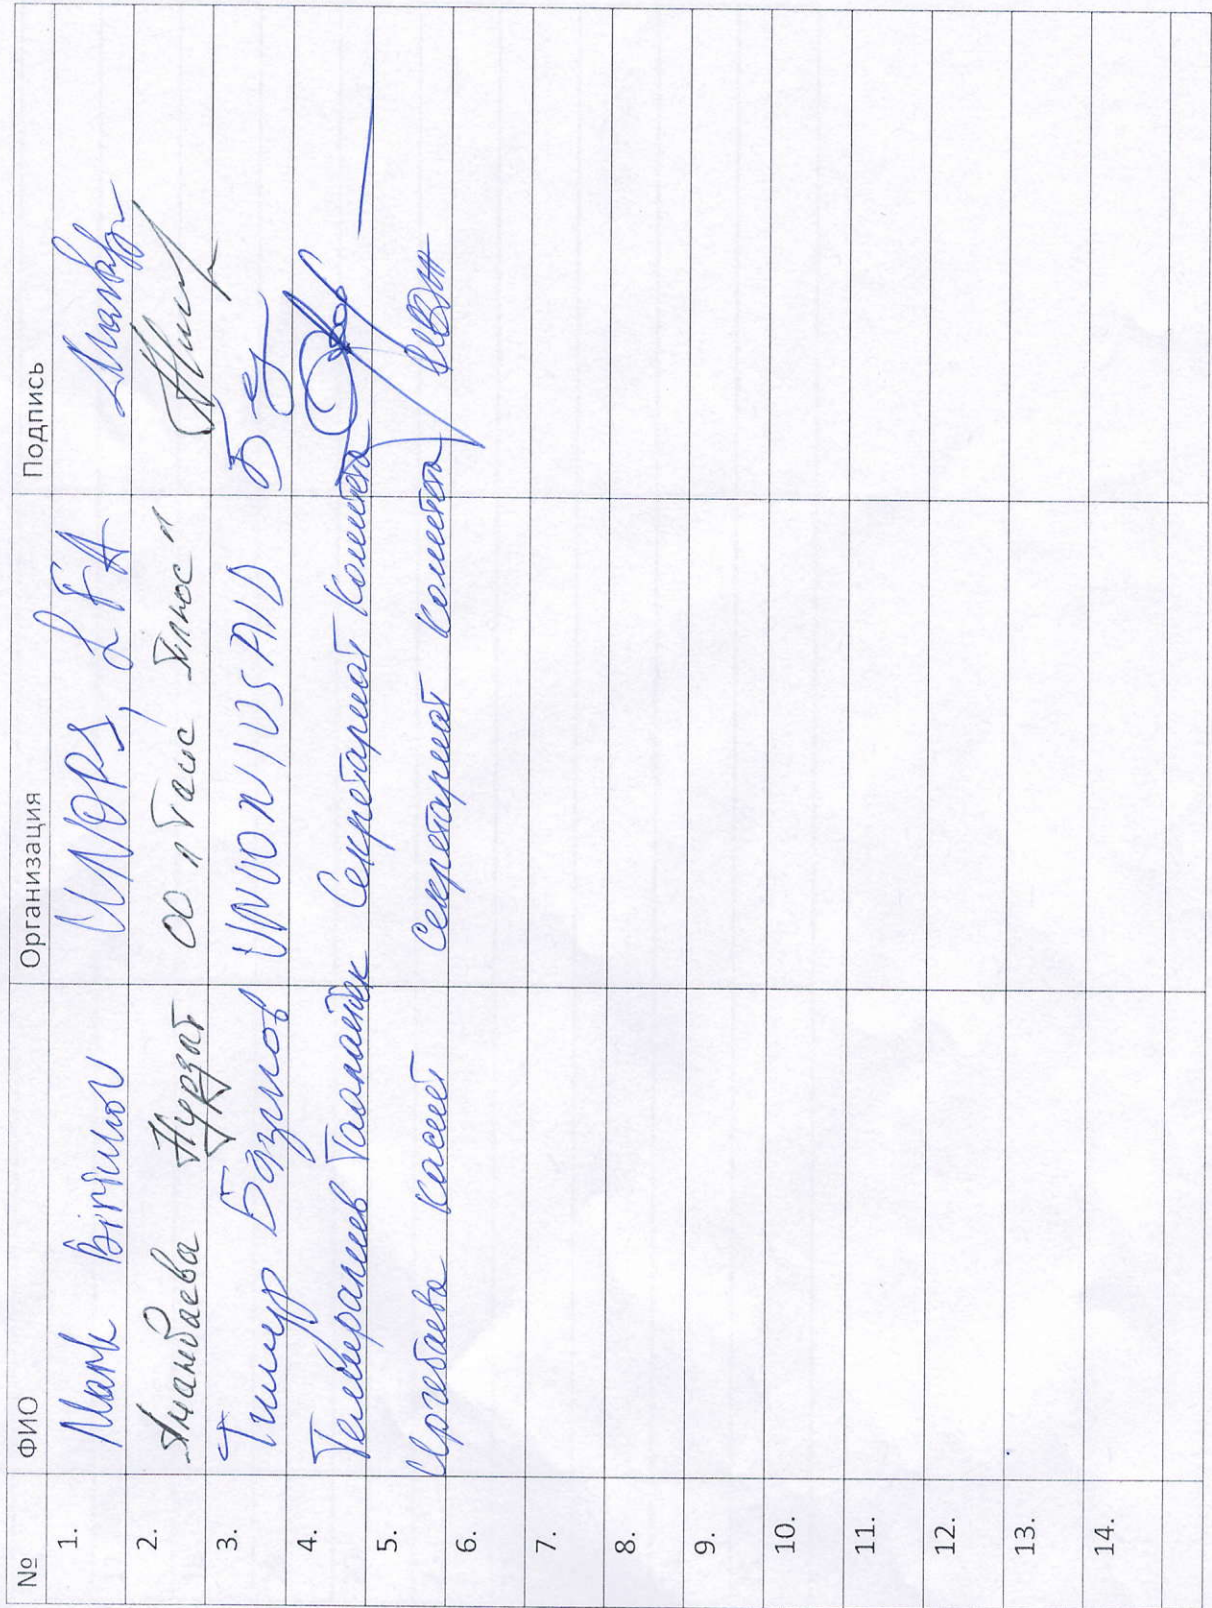 № ФИО Организация Подпись
1. Mark Biriukov UNOPS, LFA
2. Амандаева Нурзат ОО "Таис Плюс"
3. Тимур UNUON/USAID
4. Темиралиев Таалайбек Секретариат Комитета
5. Иргебаева Касиет Секретариат Комитета
6.
7.
8.
9.
10.
11.
12.
13.
14.